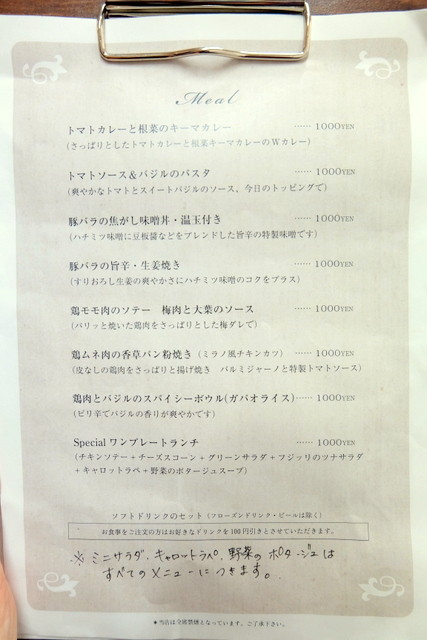 Meal
トマトカレーと根菜のキーマカレー …… 1000YEN
(さっぱりとしたトマトカレーと根菜キーマカレーのWカレー)
トマトソース&バジルのパスタ …… 1000YEN
(爽やかなトマトとスイートバジルのソース、今日のトッピングで)
豚バラの焦がし味噌丼・温玉付き …… 1000YEN
(ハチミツ味噌に豆板醤などをブレンドした旨辛の特製味噌です)
豚バラの旨辛・生姜焼き …… 1000YEN
(すりおろし生姜の爽やかさにハチミツ味噌のコクをプラス)
鶏モモ肉のソテー 梅肉と大葉のソース …… 1000YEN
(パリッと焼いた鶏肉をさっぱりとした梅ダレで)
鶏ムネ肉の香草パン粉焼き(ミラノ風チキンカツ) …… 1000YEN
(皮なしの鶏肉をさっぱりと揚げ焼き パルミジャーノと特製トマトソース)
鶏肉とバジルのスパイシーボウル(ガパオライス)…… 1000YEN
(ピリ辛でバジルの香りが爽やかです)
Special ワンプレートランチ …… 1000YEN
(チキンソテー+チーズスコーン+グリーンサラダ+フジッリのツナサラダ
+キャロットラペ+野菜のポタージュスープ)
ソフトドリンクのセット(フローズンドリンク・ビールは除く)
お食事をご注文の方はお好きなドリンクを100円引きとさせていただきます。
※ ミニサラダ、キャロットラペ、野菜のポタージュは
すべてのメニューにつきます。
★当店は全席禁煙となっています。ご了承下さい。